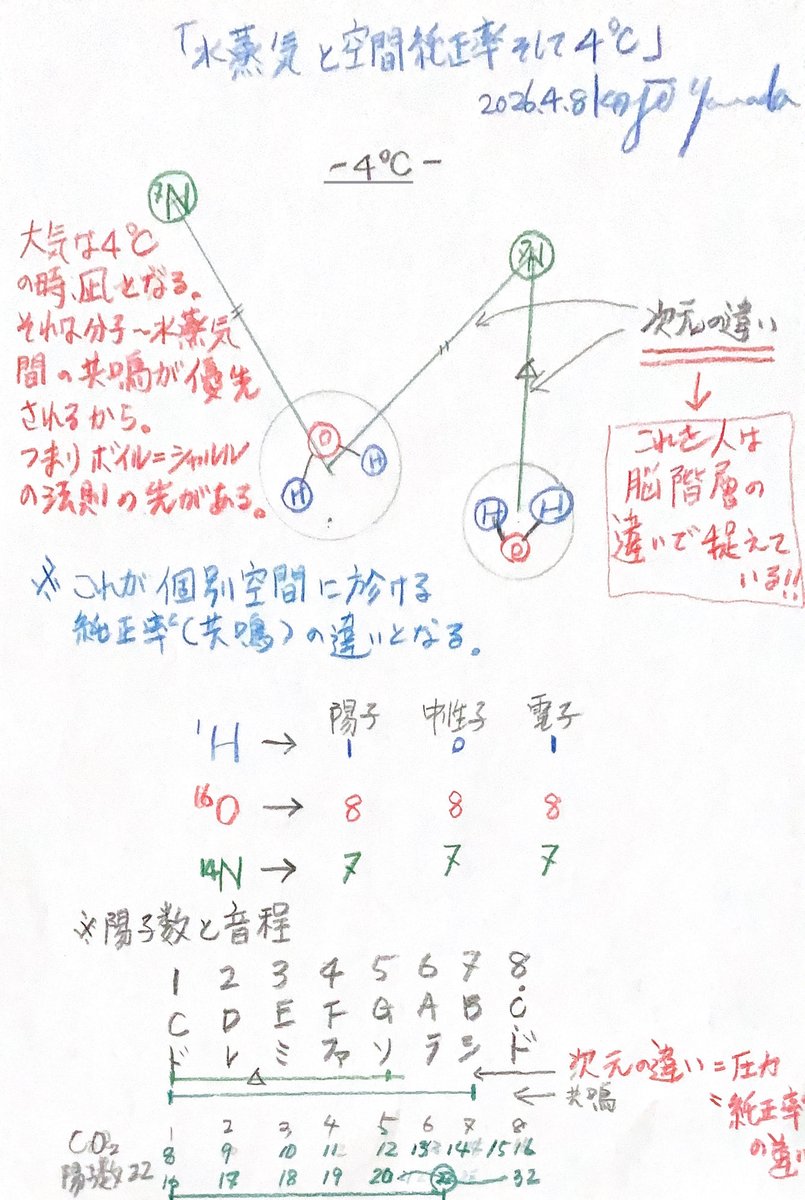 「水蒸気と空間純正率そして4℃」
2026.4.8 Koji Yamada
-4℃-
7N
7N
大気は4℃
の時、凪となる。
それは分子～水蒸気
間の共鳴が優先
されるから。
つまりボイル=シャルル
の法則の先がある。
次元の違い
これを人は
脳階層の
違いで捉えて
いる!!
O
H
H
H
H
O
※これが個別空間に於ける
純正率(共鳴)の違いとなる。
陽子 中性子 電子
¹H → 1 0 1
¹⁶O → 8 8 8
¹⁴N → 7 7 7
※陽子数と音程
1 2 3 4 5 6 7 8
C D E F G A B C
ド レ ミ ファ ソ ラ シ ド
次元の違い=圧力
共鳴
純正率
の違い
1 2 3 4 5 6 7 8
CO₂ 8 9 10 11 12 13 14 15 16
陽子数22 16 17 18 19 20 22 32